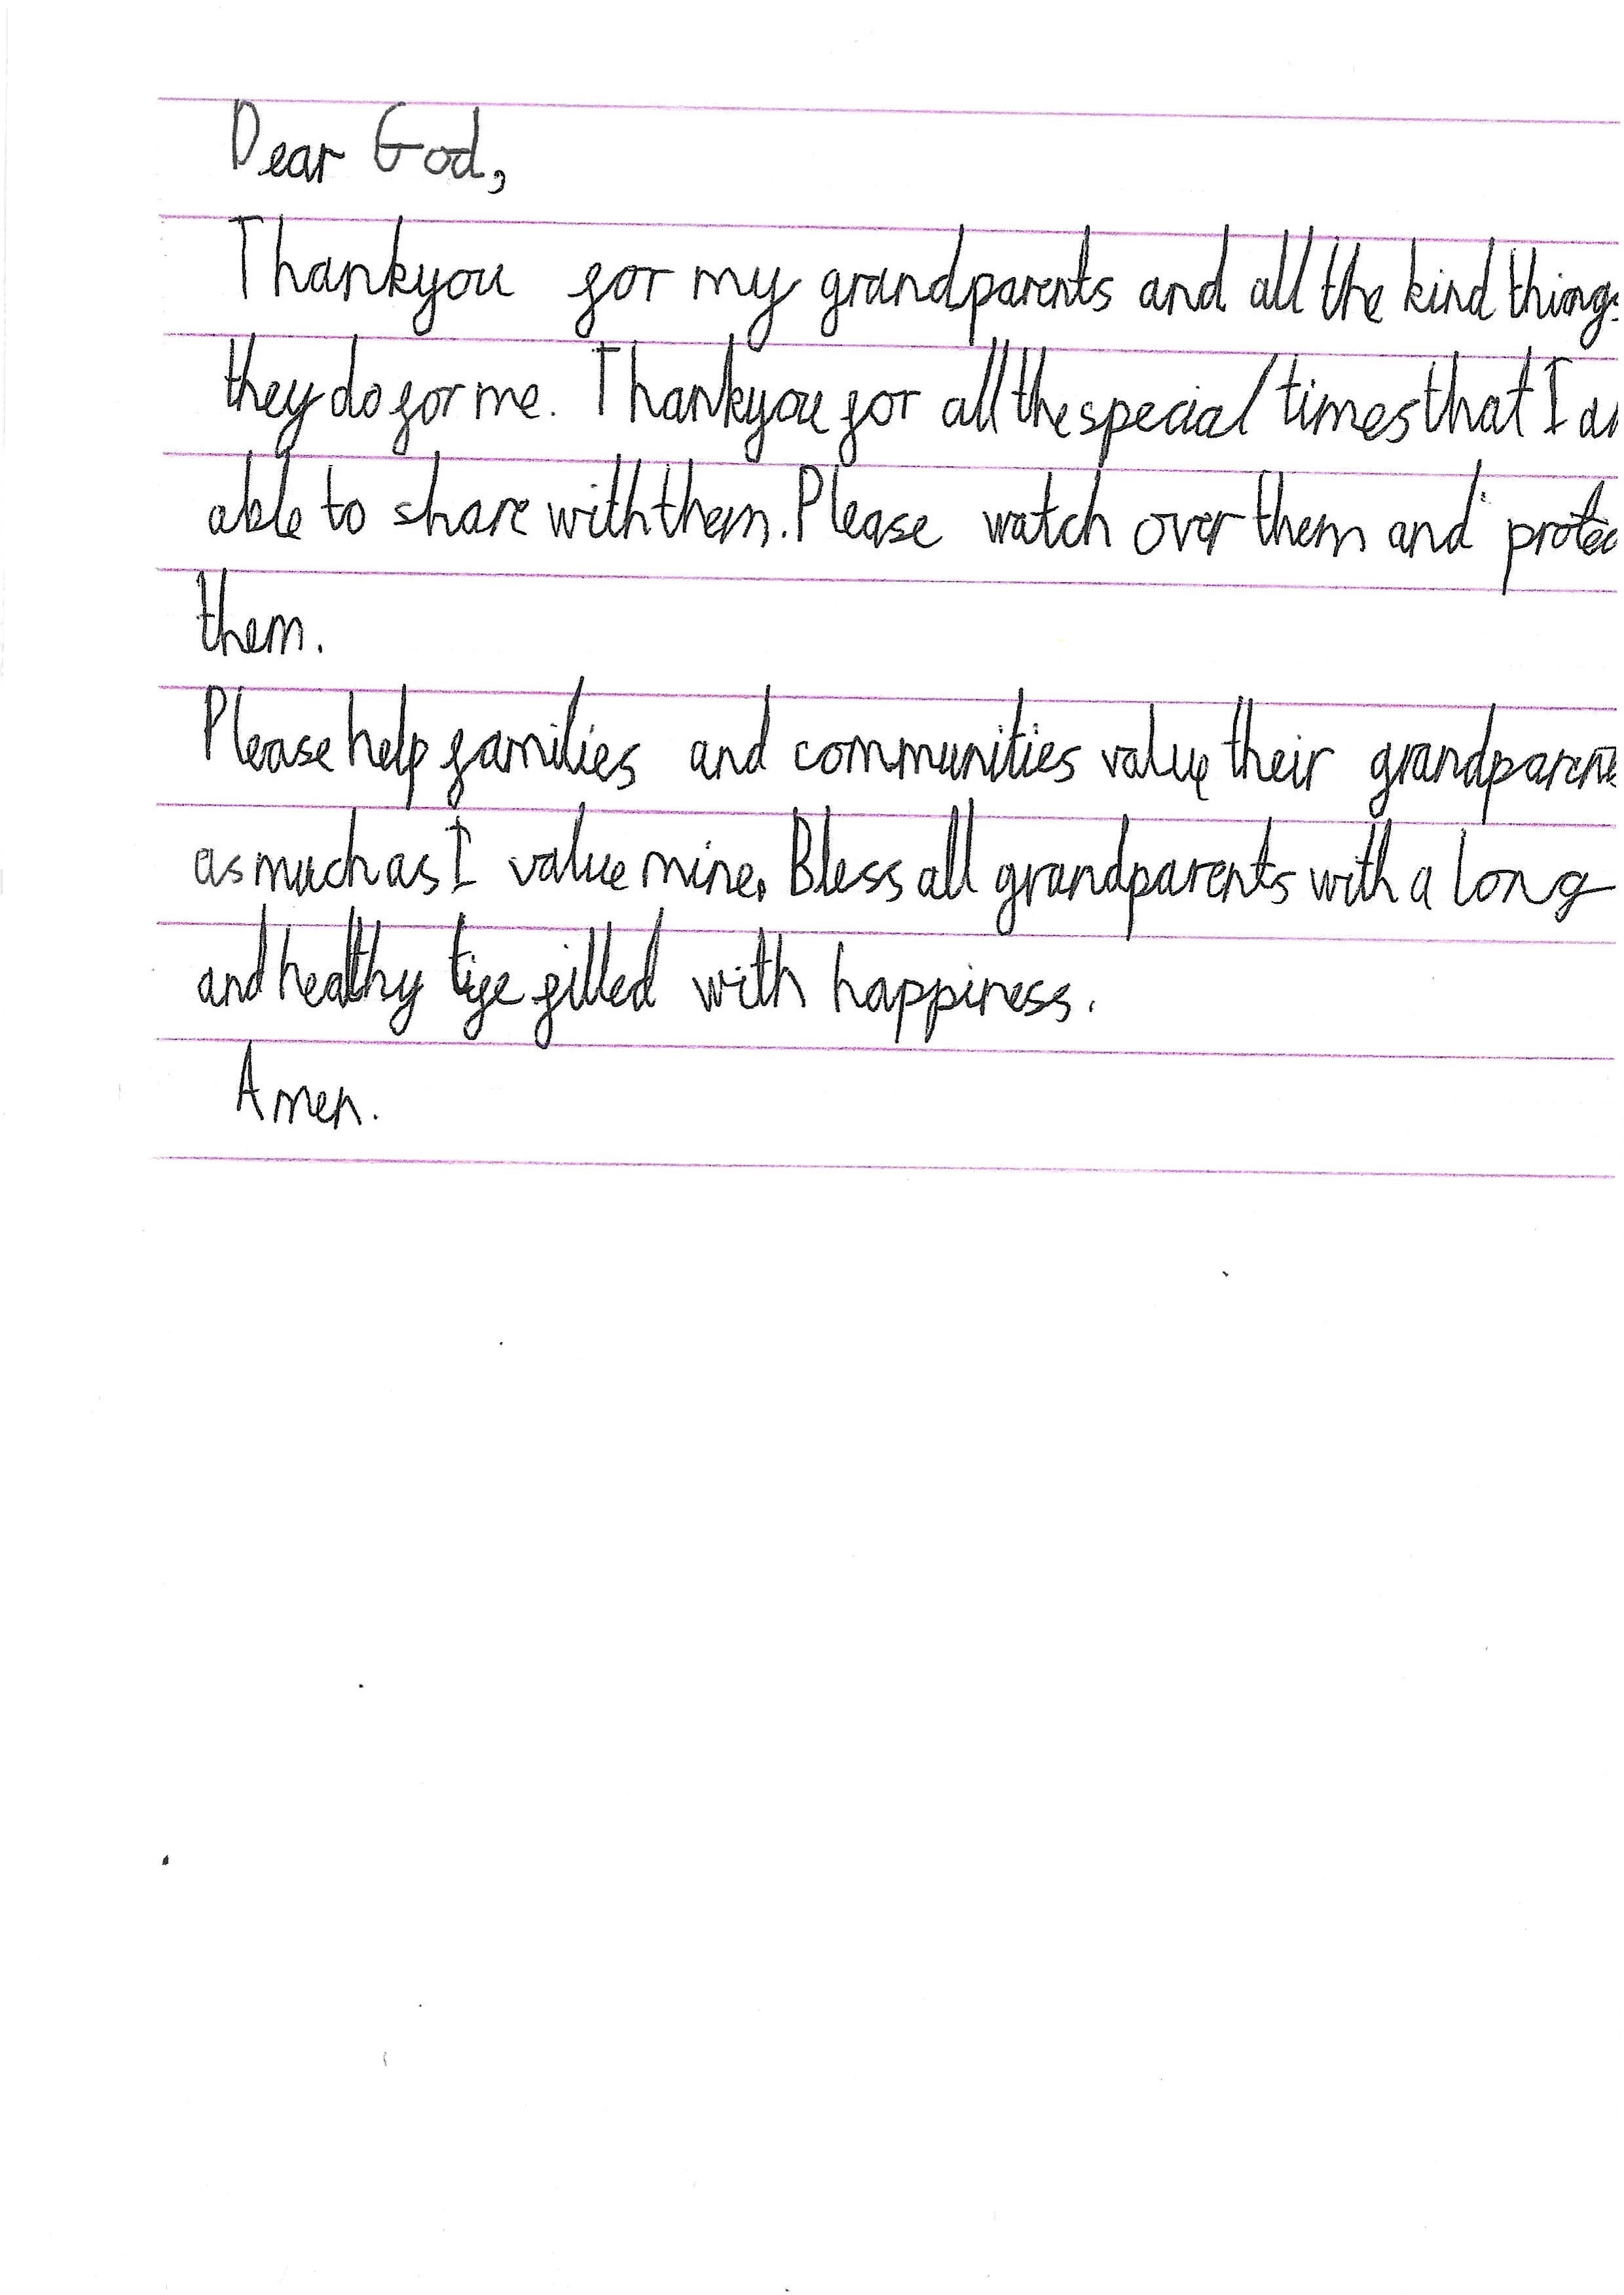 Dear God,
Thankyou for my grandparents and all the kind things
they do for me. Thankyou for all the special times that I a
able to share with them. Please watch over them and protec
them.
Please help families and communities value their grandparent
as much as I value mine. Bless all grandparents with a long
and healthy life filled with happiness.
Amen.